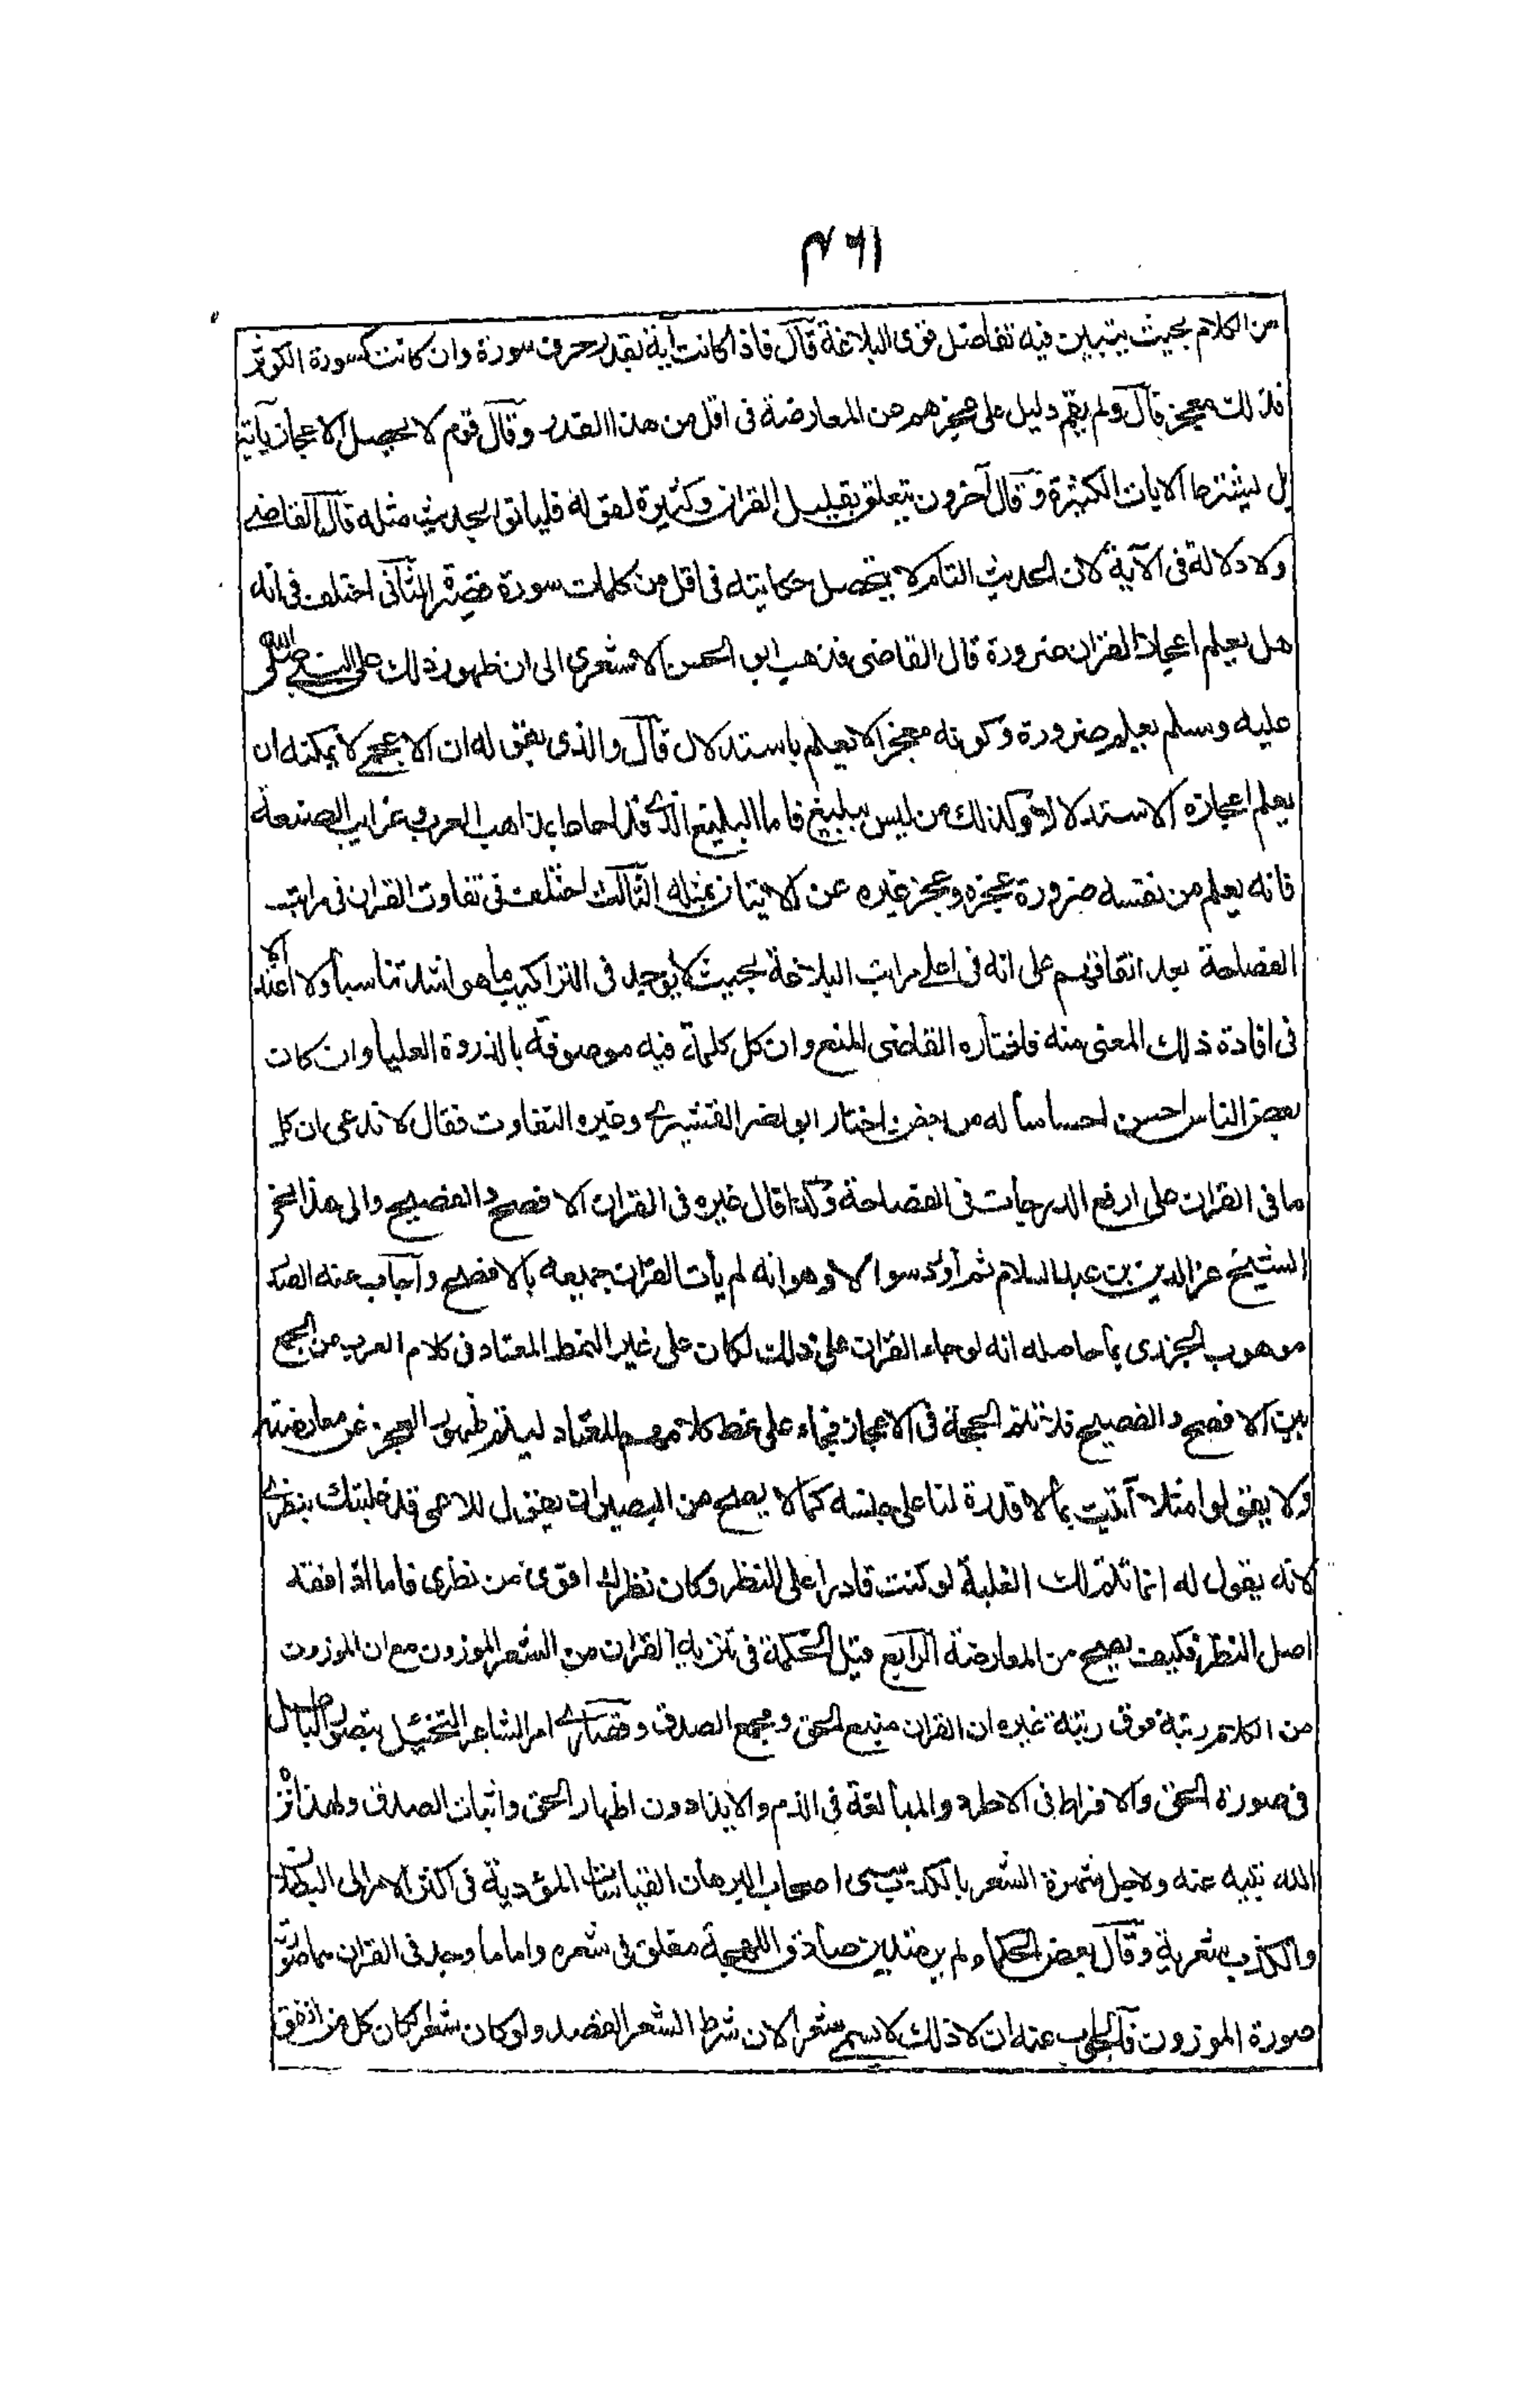 ۴۶۱
من الكلام بحيث يتبين فيه تفاضل قوى البلاغة قال فاذا كانت آية بقدر حرف سورة وان كانت كسورة الكوثر
فذلك معجز قال ولم يقم دليل على عجزهم عن المعارضة فى اقل من هذا القدر وقال قوم لا يحصل الاعجاز بآية
بل يشترط الايات الكثيرة وقال آخرون يتعلق بقليل القران وكثيرة لقوله فلياتوا بحديث مثله قال القاضى
ولا دلالة فى الآية لان الحديث التام لا يتحصل حكايته فى اقل من كلمات سورة قصيرة الثانى اختلف فى انه
هل يعلم اعجاز القران ضرورة قال القاضى فذهب ابو الحسن الاشعرى الى ان ظهور ذلك على النبى صلى الله
عليه وسلم يعلم ضرورة وكونه معجزا لا يعلم باستدلال قال والذى يقوله ان الاعجمى لا يمكنه ان
يعلم اعجازه الا استدلالا وكذلك من ليس ببليغ فاما البليغ الذى قد احاط بمذاهب العرب وغرايب الصنعة
فانه يعلم من نفسه ضرورة عجزه وعجز غيره عن الاتيان بمثله الثالث اختلف فى تفاوت القران فى مراتب
الفصاحة بعد اتفاقهم على انه فى اعلى مراتب البلاغة بحيث لا يوجد فى التراكيب ما هو اشد تناسبا ولا اعتدالا
فى افادة ذلك المعنى منه فاختاره القاضى المنع وان كل كلمة فيه موصوفة بالذروة العليا وان كان
بعض الناس احسن احساسا له من بعض واختار ابو نصر القشيرى وغيره التفاوت فقال لا ندعى ان كل
ما فى القران على ارفع الدرجات فى الفصاحة وكذا قال غيره فى القران الافصح والفصيح والى هذا نحى
الشيخ عز الدين بن عبد السلام ثم اورد سوالا وهو انه لم يأت القران جميعه بالافصح واجاب عنه الصد
موهوب الجزرى بما حاصله انه لو جاء القران على ذلك لكان على غير النمط المعتاد فى كلام العرب من الجمع
بين الافصح والفصيح فلا تتم الحجة فى الاعجاز فجاء على نمط كلامهم المعتاد ليتم ظهور العجز عن معارضته
ولا يقولوا مثلا أتيت بما لا قدرة لنا على جنسه كما لا يصح من البصير ان يقول للاعمى قد غلبتك بنظرى
لانه يقول له انما تتم لك الغلبة لو كنت قادرا على النظر وكان نظرك اقوى من نظرى فاما اذا فقد
اصل النظر فكيف يصح من المعارضة الرابع قيل الحكمة فى تنزيه القران من الشعر الموزون مع ان الموزون
من الكلام رتبة فوق رتبة غيره ان القران منبع الحق ومجمع الصدق وقصارى امر الشاعر التخييل بتصور الباطل
فى صورة الحق والافراط فى الاطراء والمبالغة فى الذم والايذاء دون اظهار الحق واثبات الصدق ولهذا نزه
الله نبيه عنه ولاجل شهرة الشعر بالكذب سمى اصحاب البرهان القياسات المؤدية فى اكثر الامر الى البطلان
والكذب شعرية وقال بعض الحكماء لم ير متدين صادق اللهجة مفلق فى شعره واما ما وجد فى القران مما صورته
صورة الموزون فالجواب عنه ان ذلك لا يسمى شعرا لان شرط الشعر القصد ولو كان شعرا لكان كل من اتفق